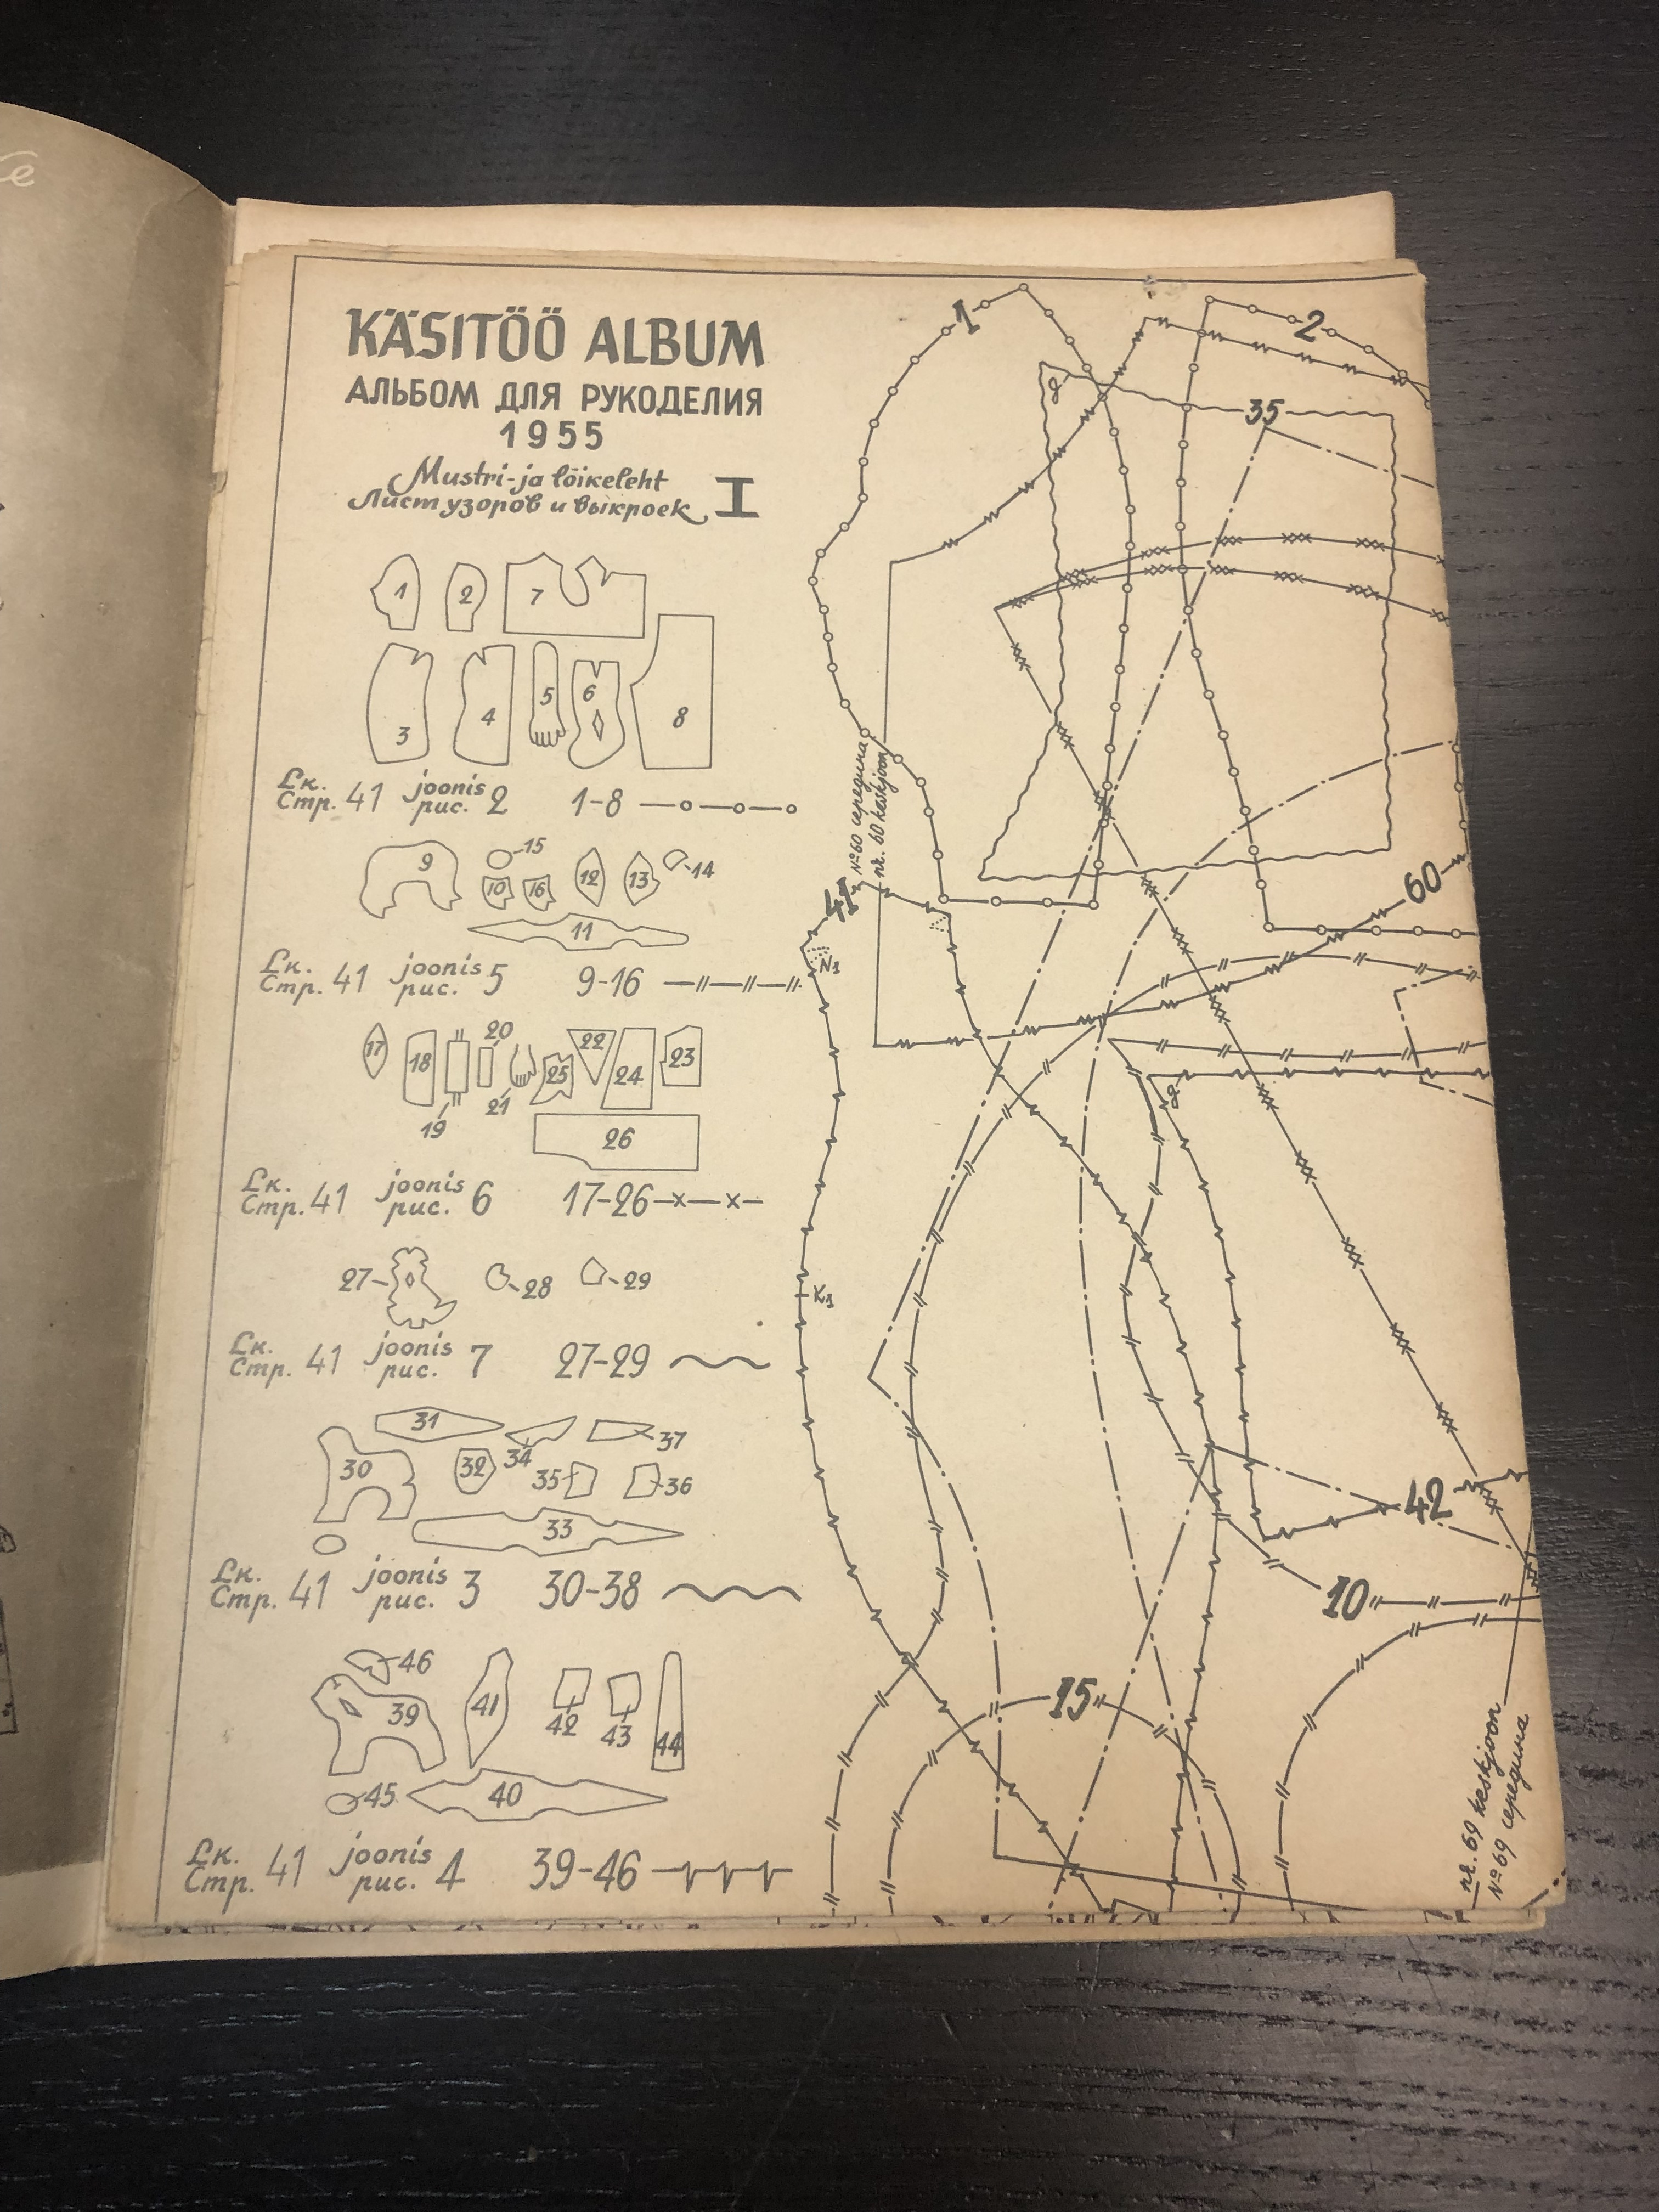 KÄSITÖÖ ALBUM
АЛЬБОМ ДЛЯ РУКОДЕЛИЯ
1955
Mustri-ja lõikeleht
Лист узоров и выкроек I
1 2 7
3 4 5 6 8
Lк. joonis
Стр. 41 рис. 2 1-8
9 15 10 16 12 13 14
11
Lк. joonis
Стр. 41 рис. 5 9-16
17 18 20 22 23
25 24
19 21
26
Lк. joonis
Стр. 41 рис. 6 17-26
27 28 29
Lк. joonis
Стр. 41 рис. 7 27-29
31 34 37
30 32 35 36
33
Lк. joonis
Стр. 41 рис. 3 30-38
46
39 41 42 43 44
45 40
Lк. joonis
Стр. 41 рис. 4 39-46
1
2
35
№ 60 середина
nr. 60 keskjoon
41
N1
60
K1
42
10
15
nr. 69 keskjoon
№ 69 середина